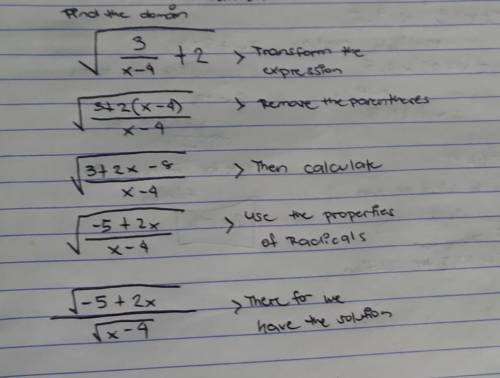 Find the domain
√(3/(x-4) + 2) > Transform the
expression
√((3+2(x-4))/(x-4)) > Remove the parentheses
√((3+2x-8)/(x-4)) > Then calculate
√((-5+2x)/(x-4)) > use the properties
of Radicals
√(-5+2x)/√(x-4) > There for we
have the solution